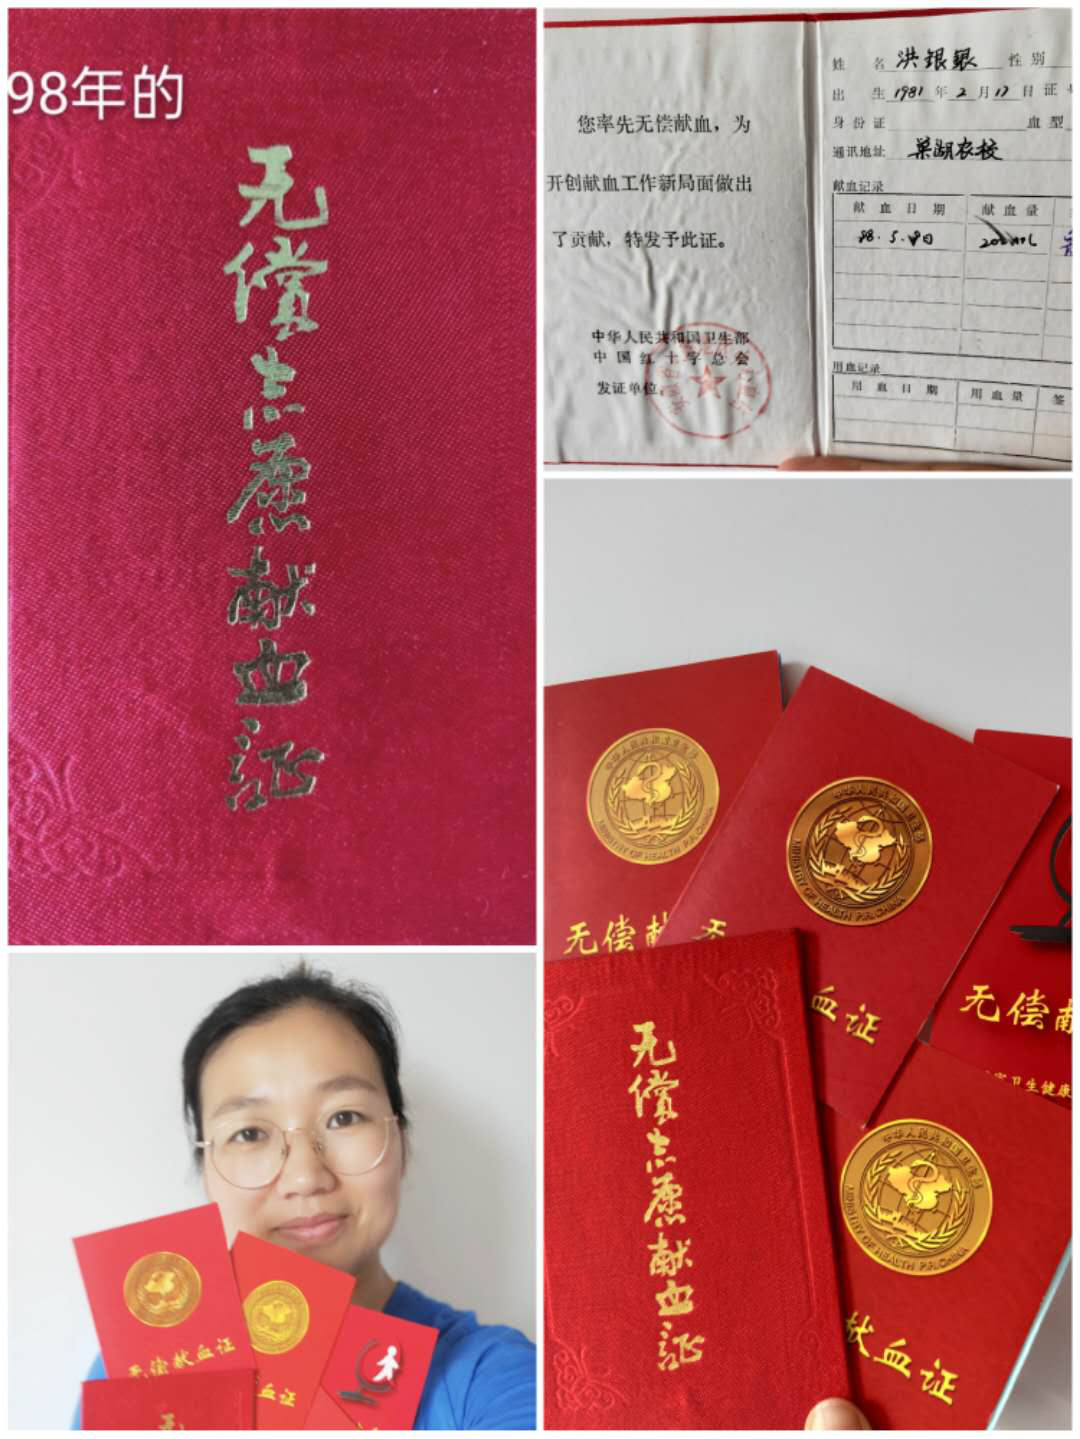 98年的
无偿志愿献血证
您率先无偿献血，为
开创献血工作新局面做出
了贡献，特发予此证。
中华人民共和国卫生部
中国红十字总会
发证单位
姓 名 洪银银 性别
出 生 1981 年 2 月 17 日 证
身份证 血型
通讯地址 巢湖农校
献血记录
献血日期 献血量
98.5.9日 200ml
用血记录
用血日期 用血量 签
中华人民共和国卫生部
MINISTRY OF HEALTH P.R.CHINA
无偿献
无
中华人民共和国卫生部
MINISTRY OF HEALTH P.R.CHINA
血证
无偿献
卫生健康
无偿志愿献血证
中华人民共和国卫生部
MINISTRY OF HEALTH P.R.CHINA
献血证
无偿献血证
血证
无